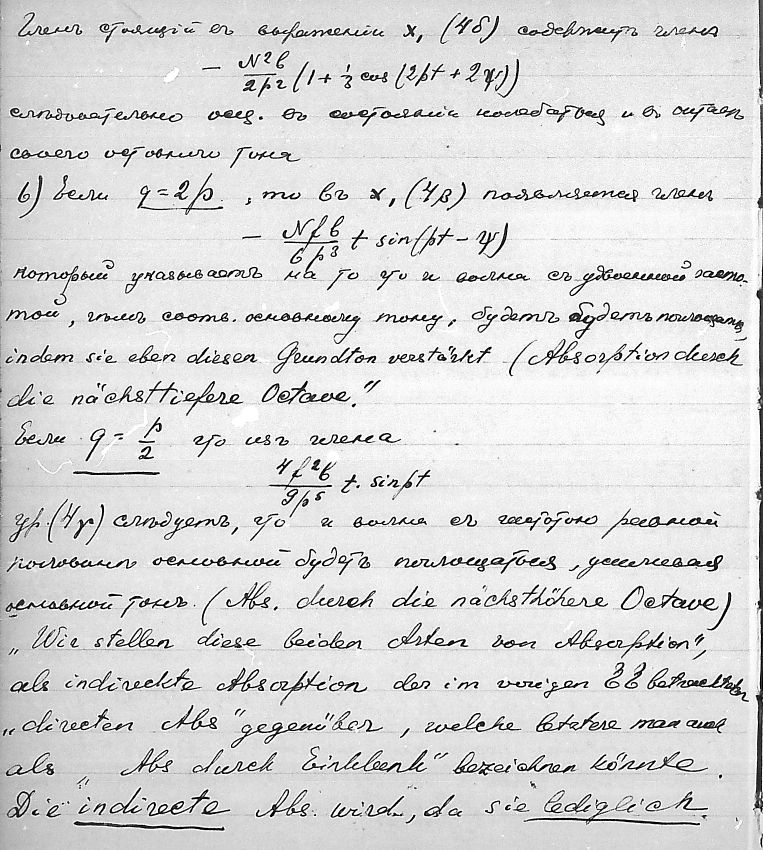 Членъ стоящій въ выраженіи x, (4б) содержитъ членъ
− N²b / 2p² (1 + 1/3 cos (2pt + 2ψ))
слѣдовательно осц. въ состояніи колебаться и въ октавѣ
своего основного тона
b) Если q = 2p, то въ x, (4β) появляется членъ
− Nfb / 6p³ t sin(pt − ψ)
который указываетъ на то что и волна съ удвоенной часто-
той, чѣмъ соотв. основному тону, будетъ будетъ поглощаться,
indem sie eben diesen Grundton verstärkt (Absorption durch
die nächsttiefere Octave."
Если q = p/2 то изъ члена
4f²b / 9p⁵ t. sinpt
ур. (4γ) слѣдуетъ, что и волна съ частотою равной
половинѣ основной будетъ поглощаться, усиливая
основной тонъ. (Abs. durch die nächsthöhere Octave)
„Wir stellen diese beiden Arten von Absorption",
als indireckte Absorption der im vorigen §§ betrachteten
„directen Abs" gegenüber, welche letztere man auch
als „ Abs durch Einklank" bezeichnen könnte.
Die indirecte Abs. wird, da sie lediglich